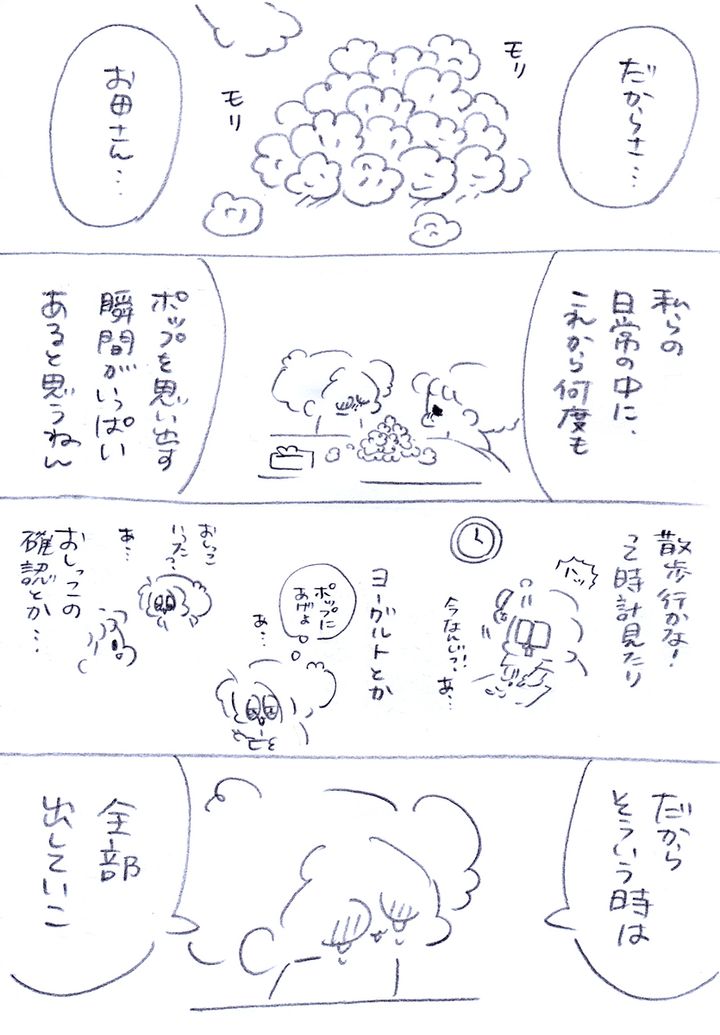 だからさ…
モリ
モリ
お母さん…
私らの
日常の中に、
これから何度も
ポップを思い出す
瞬間がいっぱい
あると思うねん
散歩行かな!
って時計見たり
ハッ
今なんじっ!!
あ…
ヨーグルトとか
ポップに
あげよ
あ…
おしっこ
いった?
あ…
おしっこの
確認とか…
だから
そういう時は
全部
出していこ